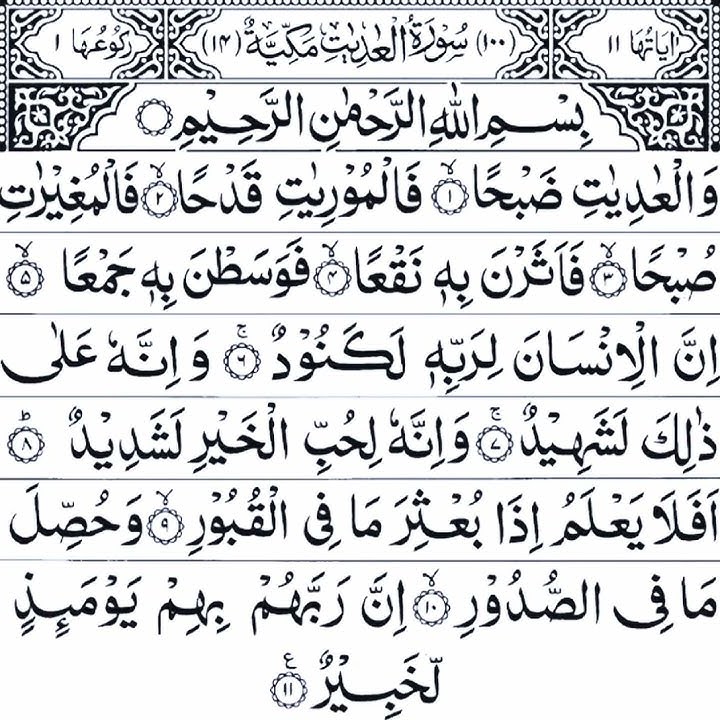 اٰيَاتُهَا ١١ (١٠٠) سُوْرَةُ الْعٰدِيٰتِ مَكِّيَّةٌ (١٤) رُكُوْعُهَا ١
بِسْمِ اللّٰهِ الرَّحْمٰنِ الرَّحِيْمِ
وَالْعٰدِيٰتِ ضَبْحًا ۙ﴿١﴾ فَالْمُوْرِيٰتِ قَدْحًا ۙ﴿٢﴾ فَالْمُغِيْرٰتِ
صُبْحًا ۙ﴿٣﴾ فَاَثَرْنَ بِهٖ نَقْعًا ۙ﴿٤﴾ فَوَسَطْنَ بِهٖ جَمْعًا ۙ﴿٥﴾
اِنَّ الْاِنْسَانَ لِرَبِّهٖ لَكَنُوْدٌ ۚ﴿٦﴾ وَاِنَّهٗ عَلٰى
ذٰلِكَ لَشَهِيْدٌ ۚ﴿٧﴾ وَاِنَّهٗ لِحُبِّ الْخَيْرِ لَشَدِيْدٌ ؕ﴿٨﴾
اَفَلَا يَعْلَمُ اِذَا بُعْثِرَ مَا فِى الْقُبُوْرِ ۙ﴿٩﴾ وَحُصِّلَ
مَا فِى الصُّدُوْرِ ۙ﴿١٠﴾ اِنَّ رَبَّهُمْ بِهِمْ يَوْمَئِذٍ
لَّخَبِيْرٌ ﴿١١﴾ ع